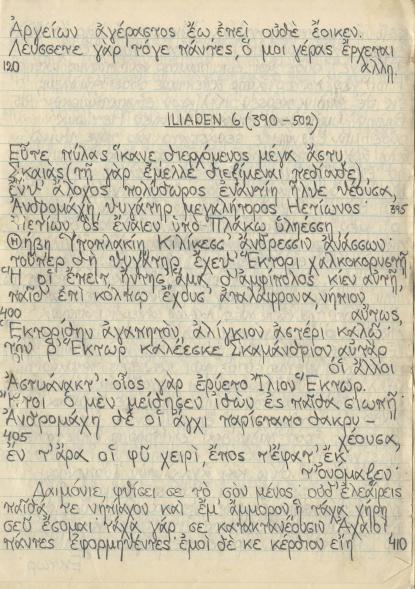 Ἀργείων ἀγέραστος ἔω, ἐπεὶ οὐδὲ ἔοικεν.
Λεύσσετε γὰρ τόγε πάντες, ὅ μοι γέρας ἔρχεται
120 ἄλλῃ.
ILIADEN 6 (390-502)
Εὖτε πύλας ἵκανε διερχόμενος μέγα ἄστυ,
Σκαιάς (τῇ γὰρ ἔμελλε διεξίμεναι πεδίαδε),
ἔνθ' ἄλοχος πολύδωρος ἐναντίη ἦλθε θέουσα,
Ἀνδρομάχη, θυγάτηρ μεγαλήτορος Ἠετίωνος· 395
Ἠετίων ὃς ἔναιεν ὑπὸ Πλάκῳ ὑληέσσῃ
Θήβῃ Ὑποπλακίῃ Κιλίκεσσ' ἄνδρεσσιν ἀνάσσων·
τοῦπερ δὴ θυγάτηρ ἔχεθ' Ἕκτορι χαλκοκορυστῇ
Ἥ οἱ ἔπειτ' ἤντησ', ἅμα δ' ἀμφίπολος κίεν αὐτῇ,
παῖδ' ἐπὶ κόλπῳ ἔχουσ' ἀταλάφρονα, νήπιον
400 αὔτως,
Ἑκτορίδην ἀγαπητὸν, ἀλίγκιον ἀστέρι καλῷ·
τὴν ῥ' Ἕκτωρ καλέεσκε Σκαμάνδριον, αὐτὰρ
οἱ ἄλλοι
Ἀστυάνακτ'· οἶος γὰρ ἐρύετο Ἴλιον Ἕκτωρ.
Ἤτοι ὁ μὲν μείδησεν ἰδὼν ἐς παῖδα σιωπῇ·
Ἀνδρομάχη δέ οἱ ἄγχι παρίστατο δακρυ-
405 χέουσα,
ἔν τ' ἄρα οἱ φῦ χειρὶ, ἔπος τ' ἔφατ' ἔκ
τ' ὀνόμαζεν·
Δαιμόνιε, φθίσει σε τὸ σὸν μένος· οὐδ' ἐλεαίρεις
παῖδά τε νηπίαχον καὶ ἔμ' ἄμμορον, ἣ τάχα χήρη
σεῦ ἔσομαι· τάχα γάρ σε κατακτανέουσιν Ἀχαιοὶ
πάντες ἐφορμηθέντες· ἐμοὶ δέ κε κέρδιον εἴη 410